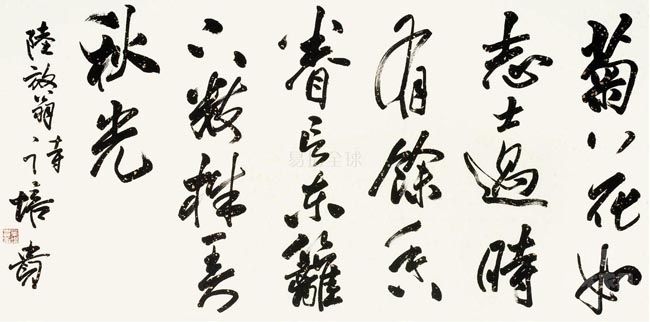 菊花如
志士過時
有餘香
眷言東籬
下數株弄
秋光
陸放翁詩培貴